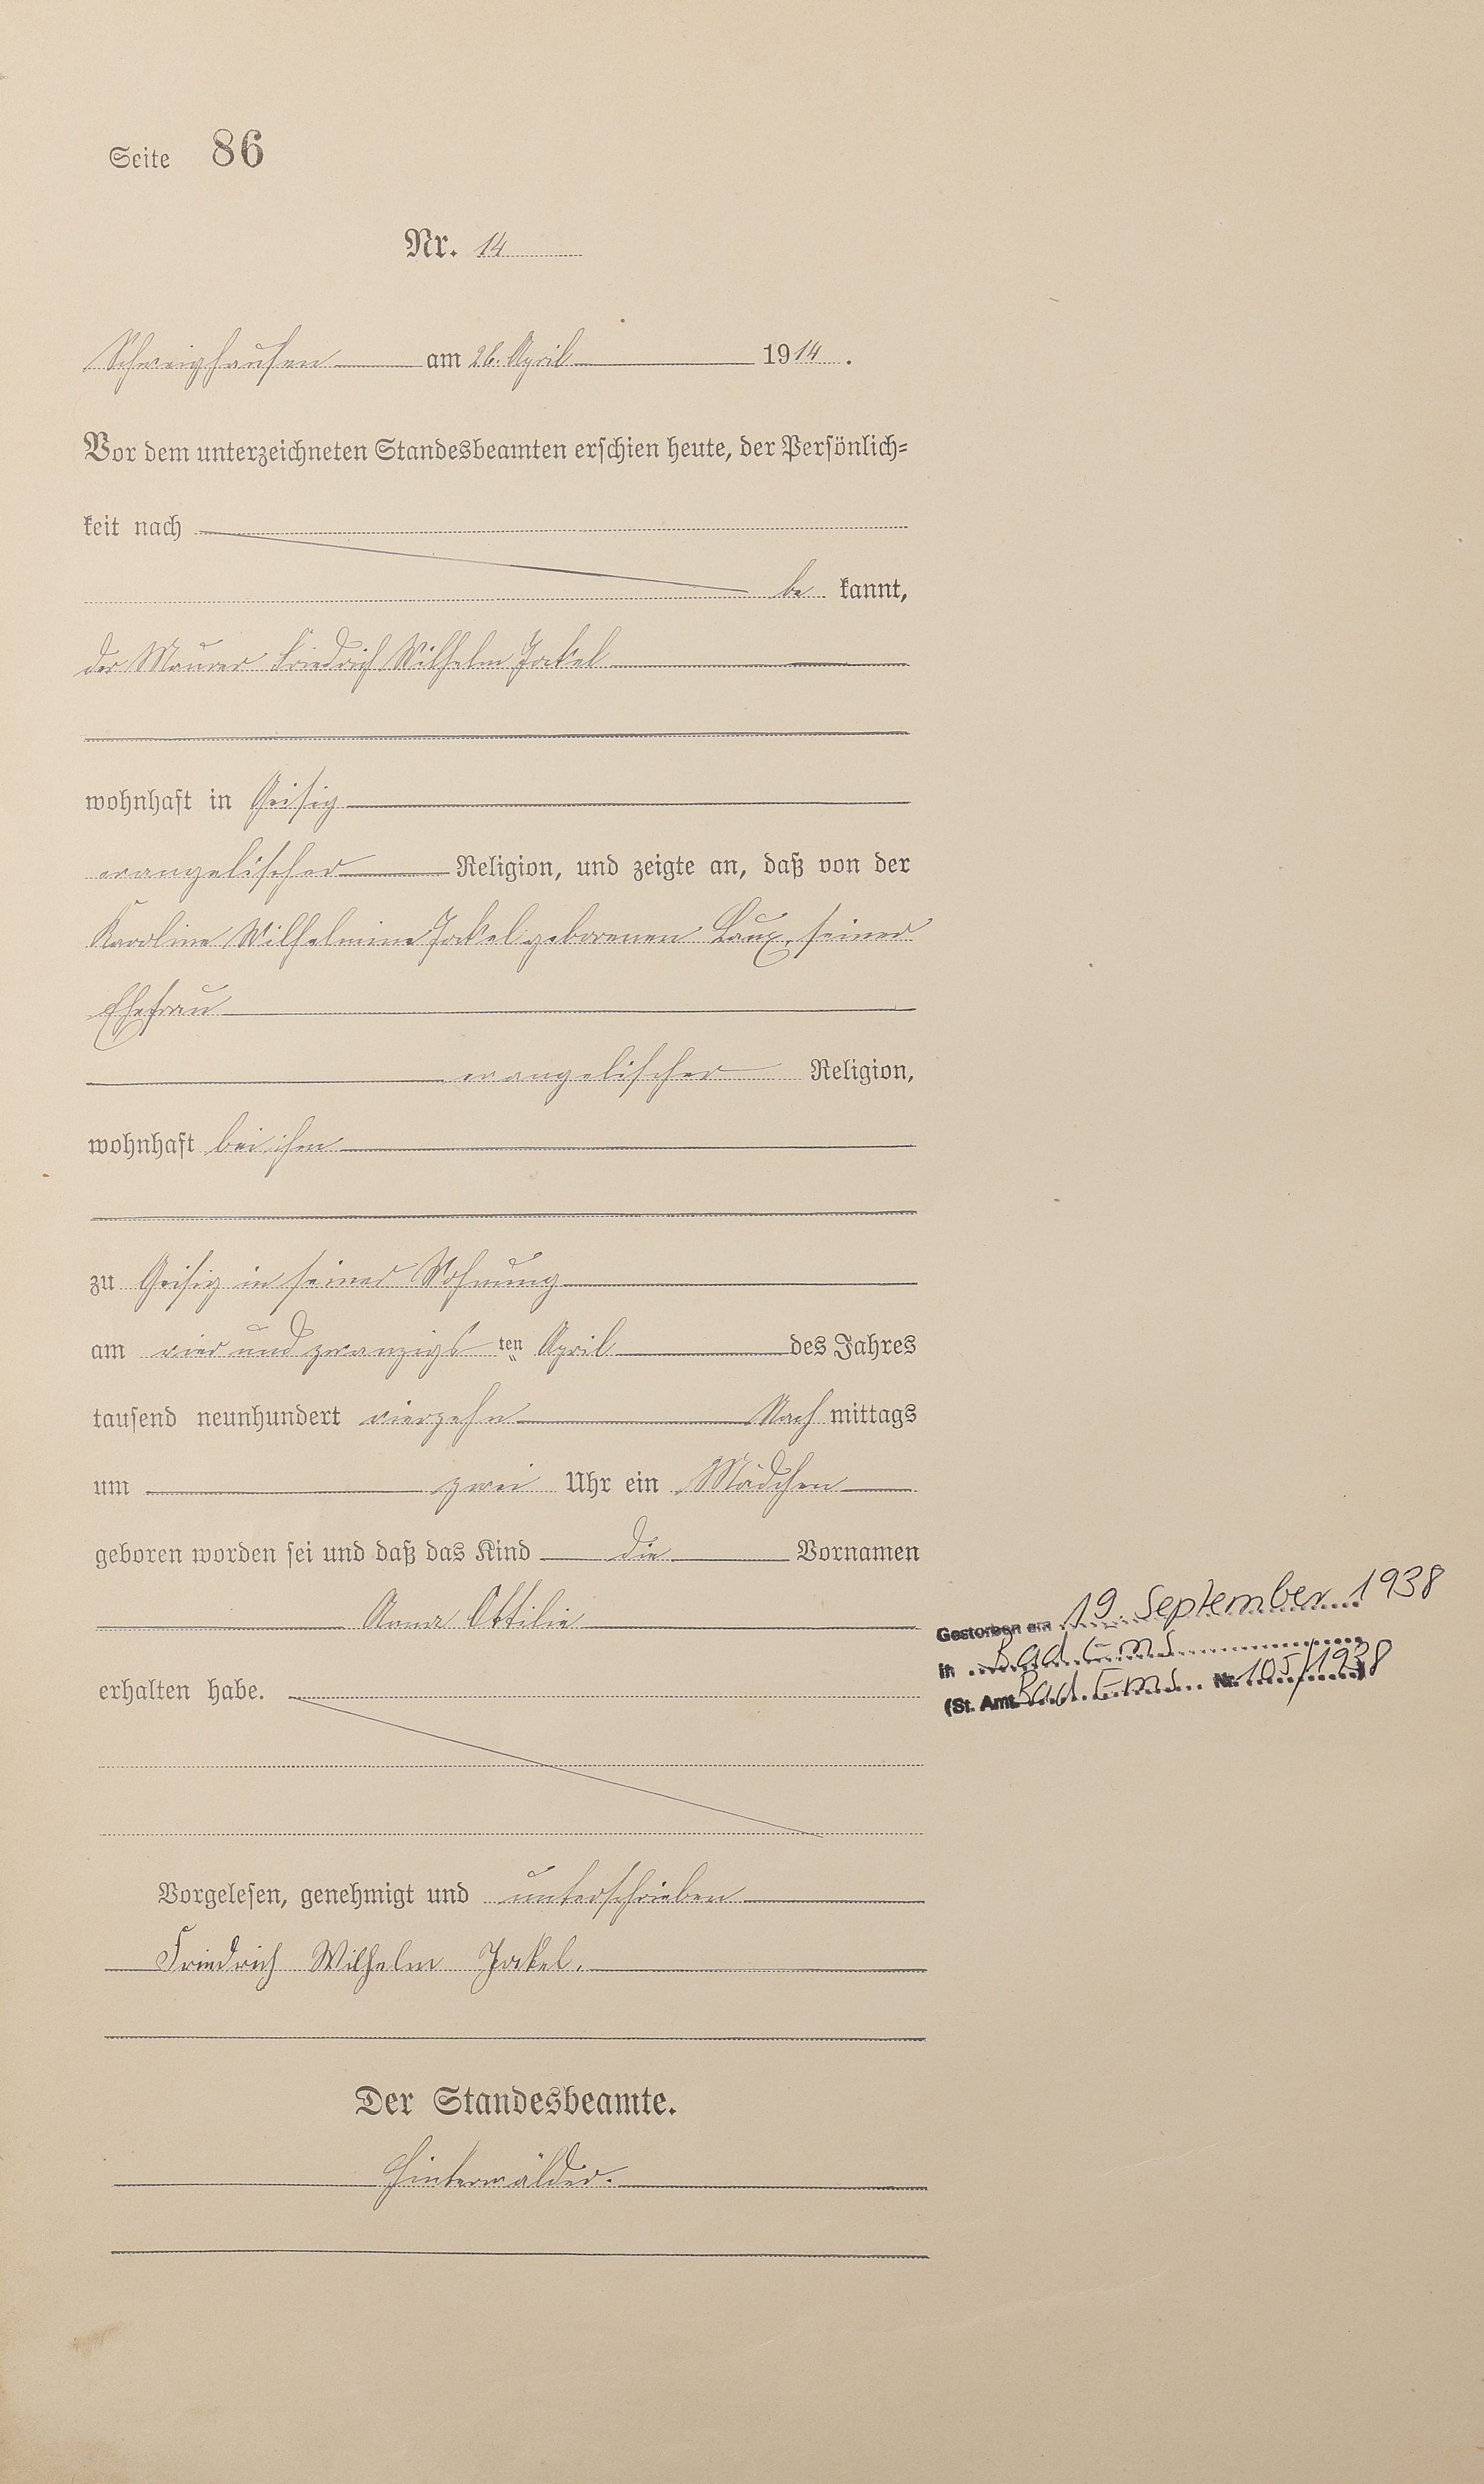 Seite 86
Nr. 14
Schweighausen am 26. April 1914.
Vor dem unterzeichneten Standesbeamten erschien heute, der Persönlich=
keit nach
be kannt,
der Maurer Friedrich Wilhelm Jackel
wohnhaft in Geisig
evangelischer Religion, und zeigte an, daß von der
Karoline Wilhelmine Jackel geborenen Laux, seiner
Ehefrau
evangelischer Religion,
wohnhaft bei ihm
zu Geisig in seiner Wohnung
am vier und zwanzigs ten April des Jahres
tausend neunhundert vierzehn Nach mittags
um zwei Uhr ein Mädchen
geboren worden sei und daß das Kind die Vornamen
Anna Ottilie
erhalten habe.
Vorgelesen, genehmigt und unterschrieben
Friedrich Wilhelm Jackel.
Der Standesbeamte.
Hinterwälder.
Gestorben am 19. September 1938
in Bad Ems
(St. Amt Bad Ems Nr. 105/1938)